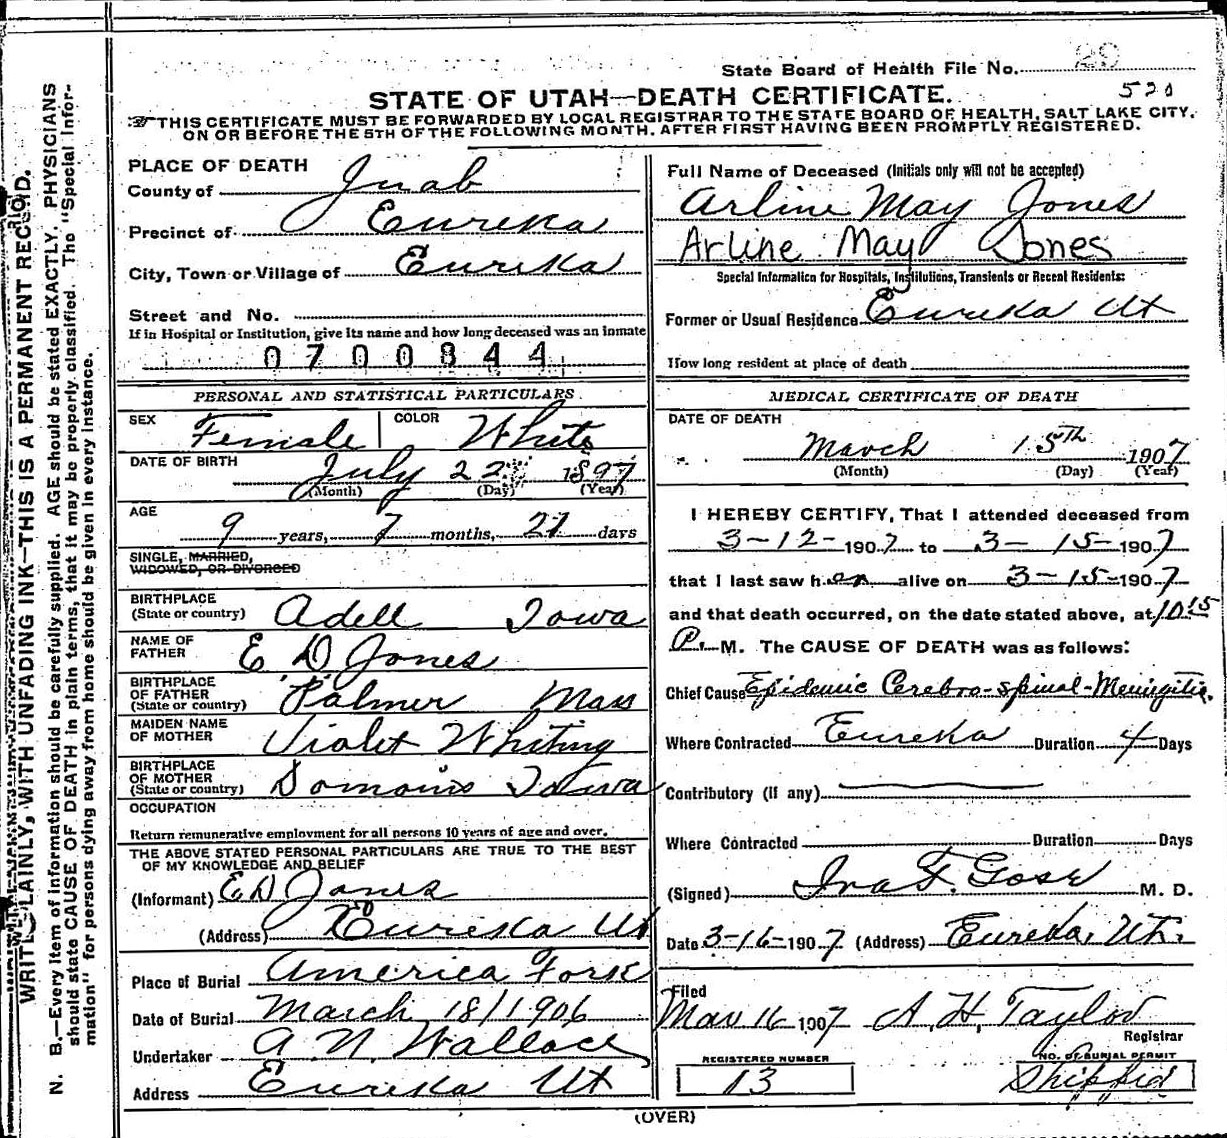 State Board of Health File No. 29
520
STATE OF UTAH—DEATH CERTIFICATE.
THIS CERTIFICATE MUST BE FORWARDED BY LOCAL REGISTRAR TO THE STATE BOARD OF HEALTH, SALT LAKE CITY,
ON OR BEFORE THE 5TH OF THE FOLLOWING MONTH, AFTER FIRST HAVING BEEN PROMPTLY REGISTERED.
WRITE PLAINLY, WITH UNFADING INK—THIS IS A PERMANENT RECORD.
N. B.—Every item of Information should be carefully supplied. AGE should be stated EXACTLY. PHYSICIANS
should state CAUSE OF DEATH in plain terms, that it may be properly classified. The "Special Infor-
mation" for persons dying away from home should be given in every instance.
PLACE OF DEATH
County of Juab
Precinct of Eureka
City, Town or Village of Eureka
Street and No.
If in Hospital or Institution, give its name and how long deceased was an inmate
0700844
PERSONAL AND STATISTICAL PARTICULARS
SEX Female COLOR White
DATE OF BIRTH July 22 1897
(Month) (Day) (Year)
AGE 9 years, 7 months, 21 days
SINGLE, MARRIED,
WIDOWED, OR DIVORCED
BIRTHPLACE
(State or country) Adell Iowa
NAME OF
FATHER E D Jones
BIRTHPLACE
OF FATHER
(State or country) Palmer Mass
MAIDEN NAME
OF MOTHER Violet Whiting
BIRTHPLACE
OF MOTHER
(State or country) Iowa
OCCUPATION
Return remunerative employment for all persons 10 years of age and over.
THE ABOVE STATED PERSONAL PARTICULARS ARE TRUE TO THE BEST
OF MY KNOWLEDGE AND BELIEF
(Informant) E D Jones
(Address) Eureka Ut
Place of Burial America Fork
Date of Burial March 18/1906
Undertaker A. N. Wallace
Address Eureka Ut
Full Name of Deceased (Initials only will not be accepted)
Arline May Jones
Arline May Jones
Special Information for Hospitals, Institutions, Transients or Recent Residents:
Former or Usual Residence Eureka Ut
How long resident at place of death
MEDICAL CERTIFICATE OF DEATH
DATE OF DEATH
March 15th 1907
(Month) (Day) (Year)
I HEREBY CERTIFY, That I attended deceased from
3-12-1907 to 3-15-1907
that I last saw her alive on 3-15-1907
and that death occurred, on the date stated above, at 10 15
P. M. The CAUSE OF DEATH was as follows:
Chief Cause Epidemic Cerebro-spinal-Meningitis.
Where Contracted Eureka Duration 4 Days
Contributory (if any)
Where Contracted Duration Days
(Signed) Ira F. Gose M. D.
Date 3-16-1907 (Address) Eureka, Ut.
Filed
Mar 16 1907 A. H. Taylor
Registrar
REGISTERED NUMBER
13
NO. OF BURIAL PERMIT
Shipped
(OVER)